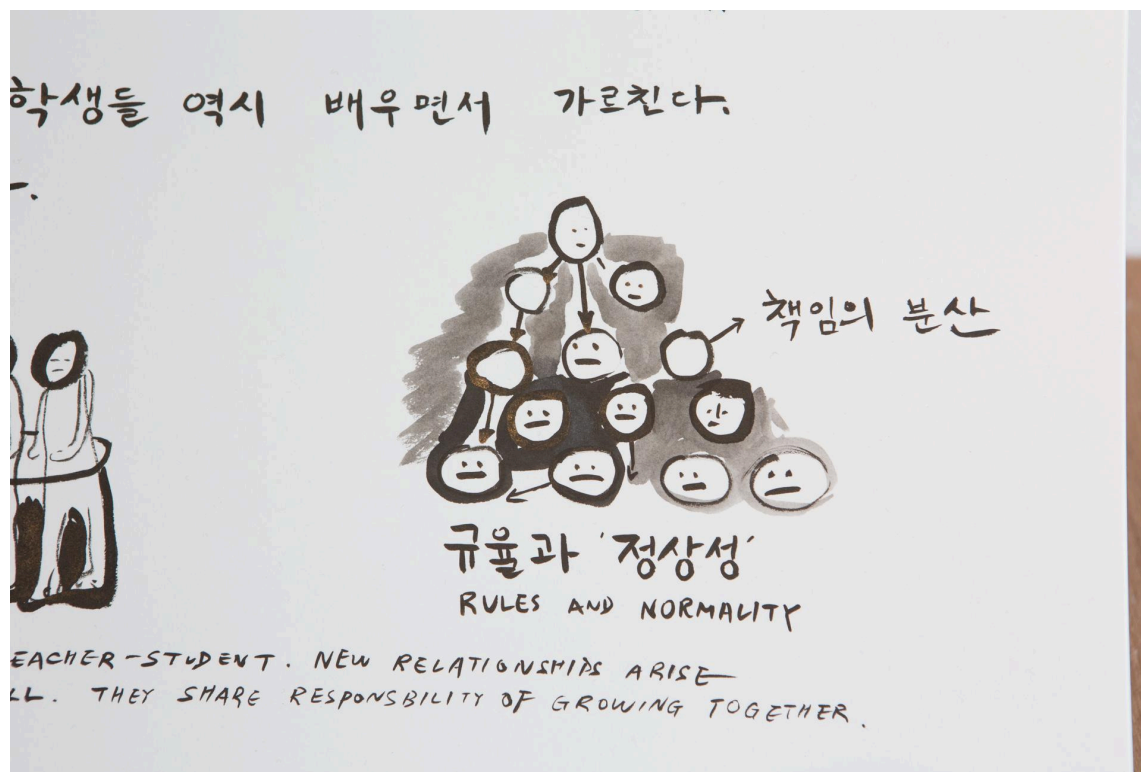 학생들 역시 배우면서 가르친다.
책임의 분산
규율과 '정상성'
RULES AND NORMALITY
EACHER-STUDENT. NEW RELATIONSHIPS ARISE
LL. THEY SHARE RESPONSBILITY OF GROWING TOGETHER.